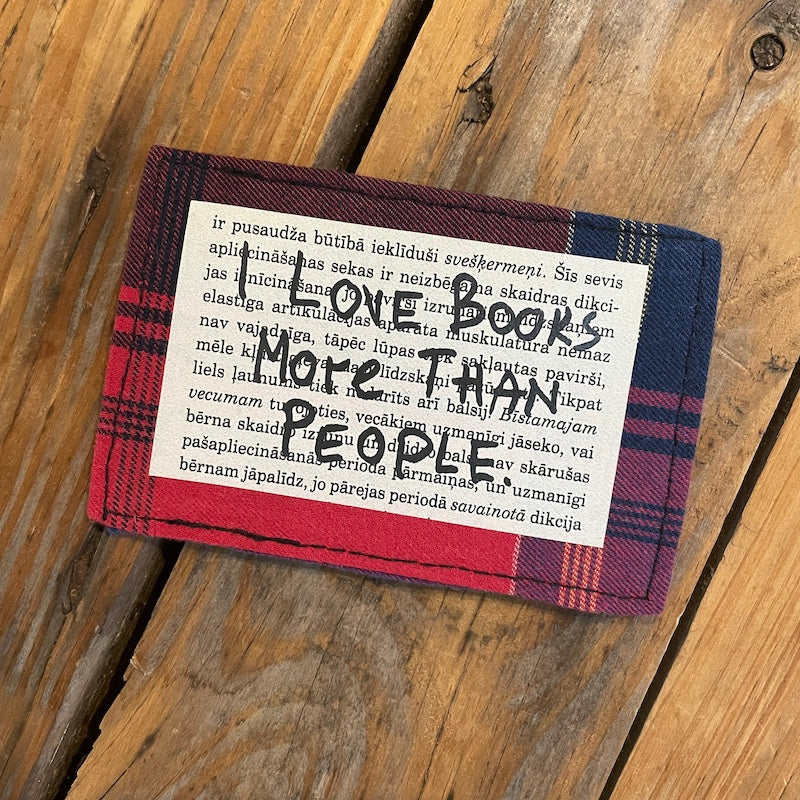 ir pusaudža būtībā iekļīduši svešķermeņi. Šīs sevis
apliecināšanas sekas ir neizbēgama skaidras dikci-
jas iznīcināšana, jo pavirši
elastīga artikulācijas aparāta muskulatūra nemaz
nav vajadzīga, tāpēc lūpas tiek sakļautas pavirši,
mēle Tikpat
liels ļaunums tiek nodarīts arī balsij! Bīstamajam
vecumam tuvojoties, vecākiem uzmanīgi jāseko, vai
bērna skaidro izrunu un nav skārušas
pašapliecināšanās perioda pārmaiņas, un uzmanīgi
bērnam jāpalīdz, jo pārejas periodā savainotā dikcija
I LOVE BOOKS
MORe THAN
PEOPLE.